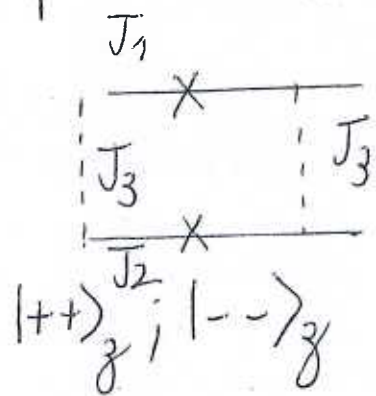 J₁
J₃ J₃
J₂
|++⟩_z ; |--⟩_z